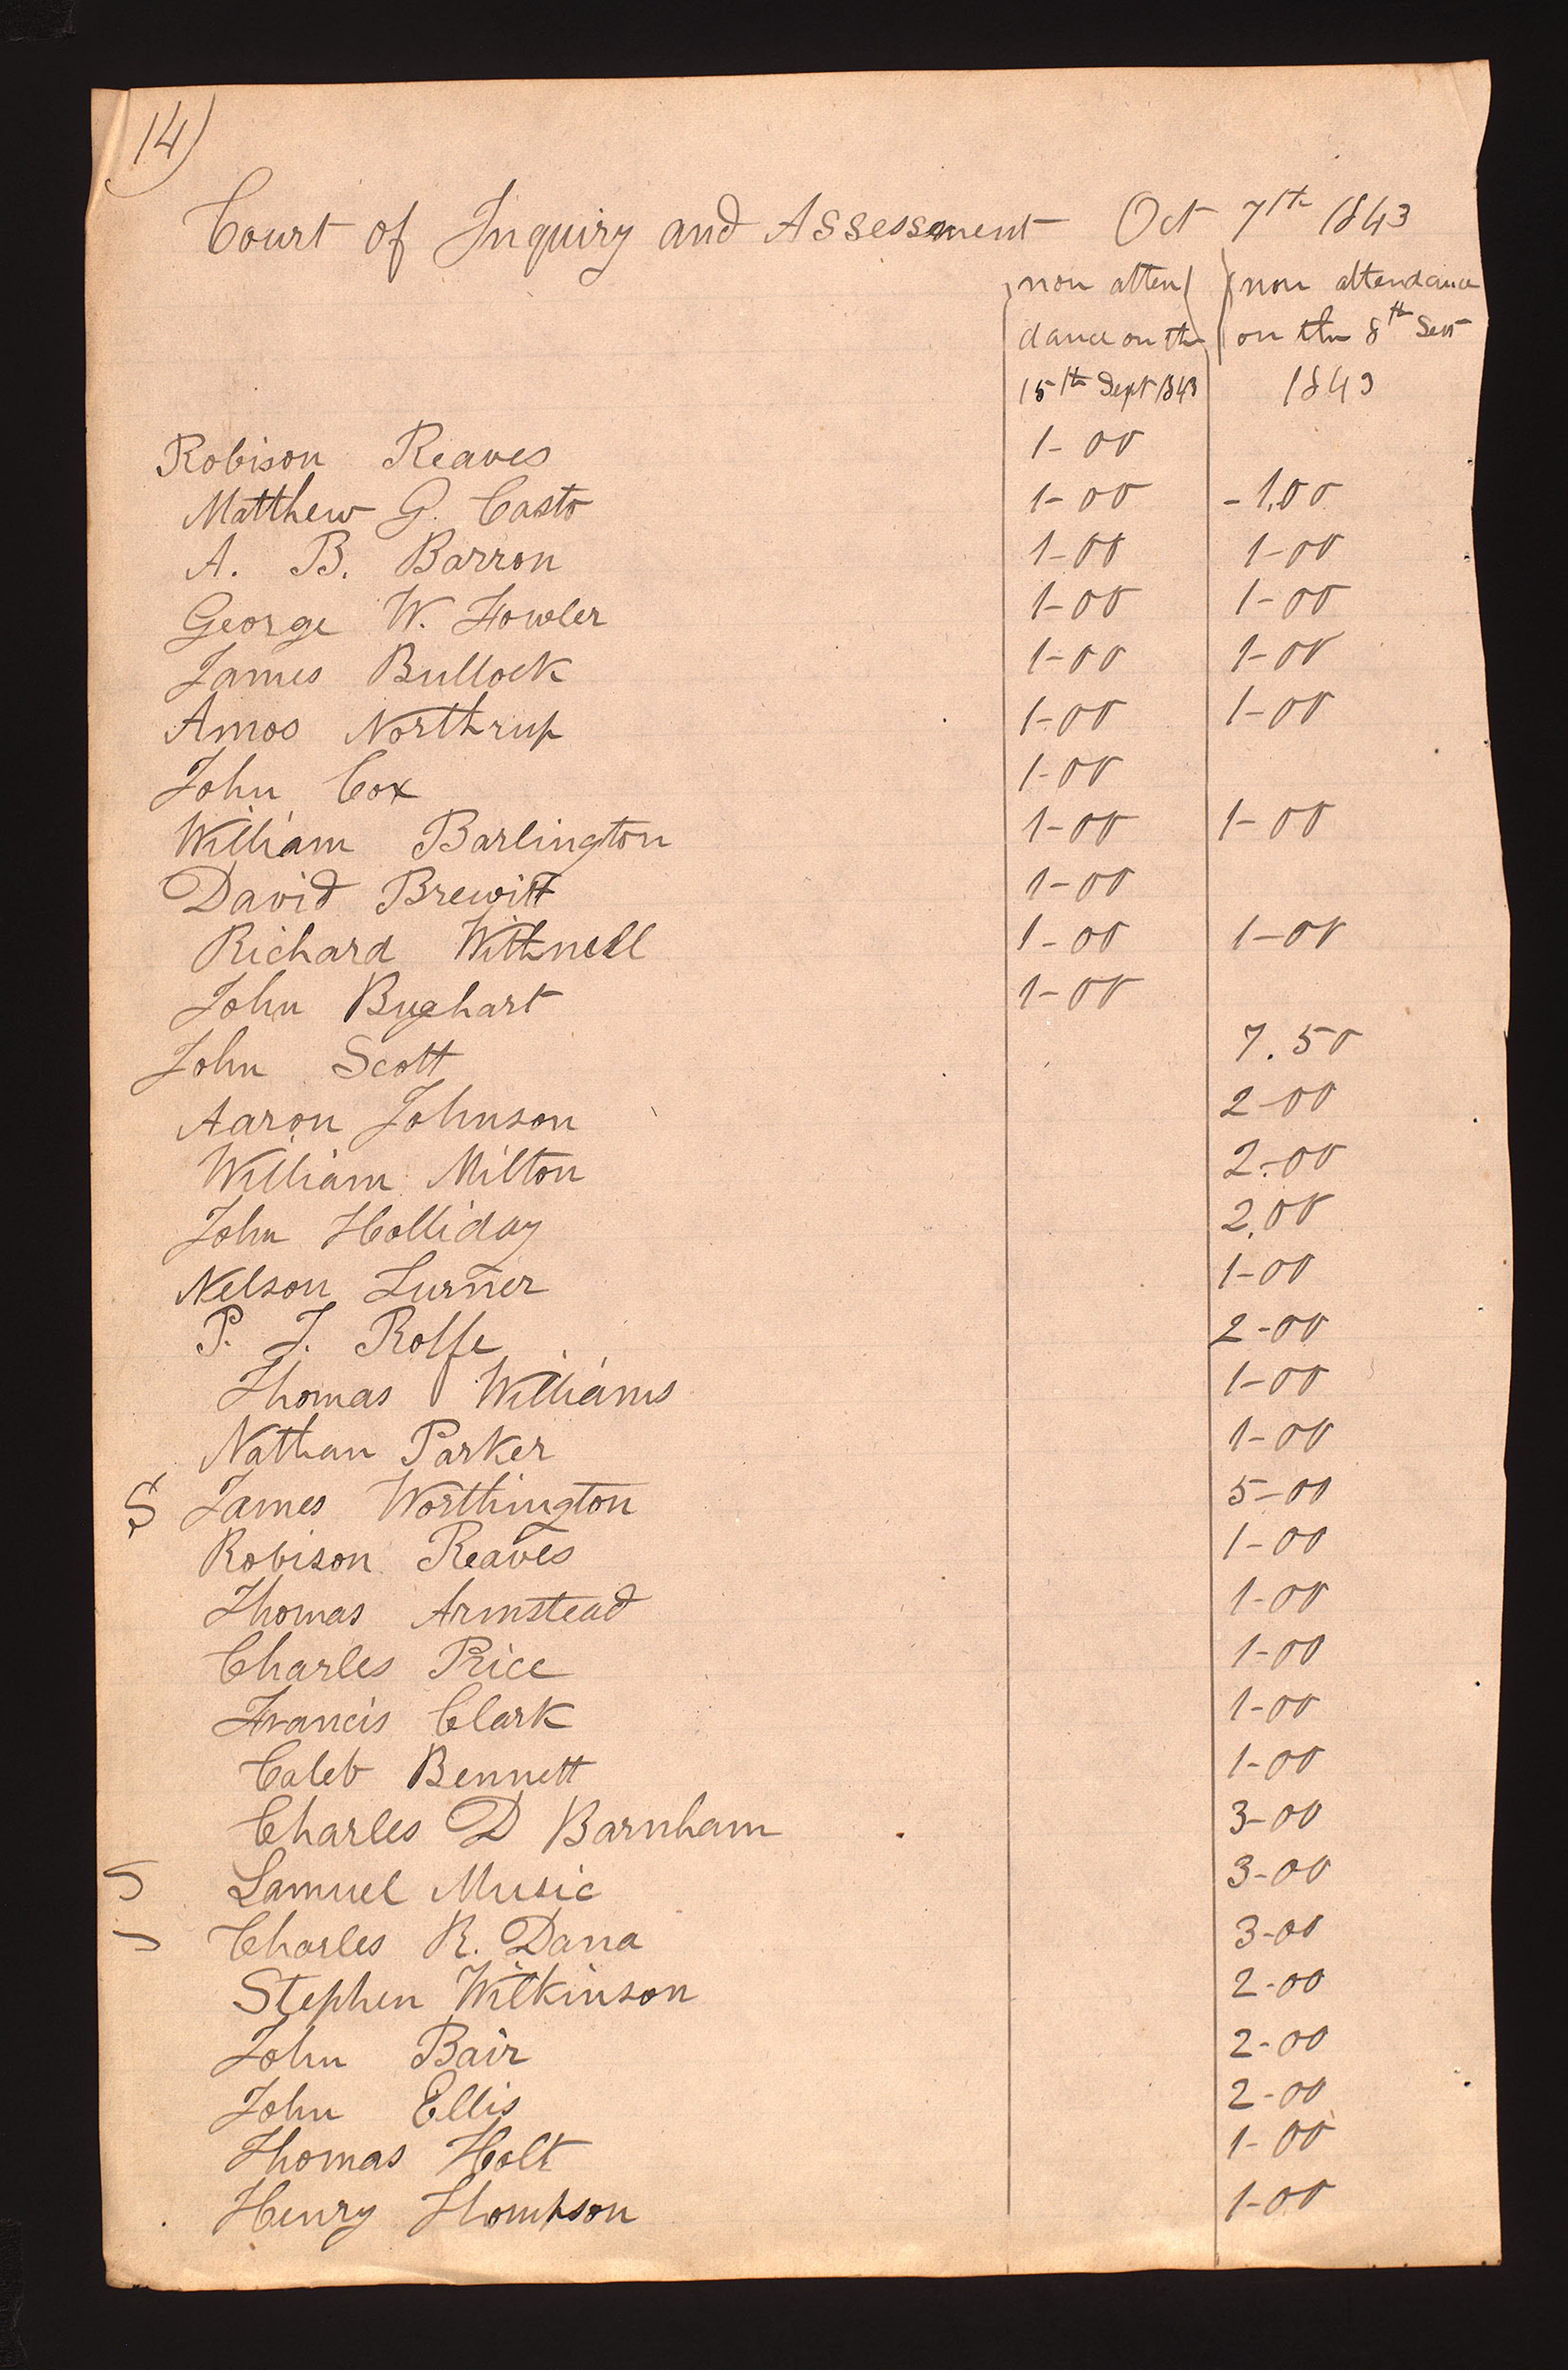 14)
Court of Inquiry and Assessment Oct 7th 1843
non atten non attendance
dance on the on the 8th Sept
15th Sept 1843 1843
Robison Reaves 1-00
Matthew G. Casto 1-00 -1.00
A. B. Barron 1-00 1-00
George W. Fowler 1-00 1-00
James Bullock 1-00 1-00
Amos Northrup 1-00 1-00
John Cox 1-00
William Barlington 1-00 1-00
David Brewitt 1-00
Richard Withnell 1-00 1-00
John Bughart 1-00
John Scott 7.50
Aaron Johnson 2-00
William Milton 2-00
John Holliday 2.00
Nelson Turner 1-00
P. J. Rolfe 2-00
Thomas Williams 1-00
Nathan Parker 1-00
S James Worthington 5-00
Robison Reaves 1-00
Thomas Armstead 1-00
Charles Price 1-00
Francis Clark 1-00
Caleb Bennett 1-00
Charles D Barnham 3-00
Samuel Music 3-00
Charles R. Dana 3-00
Stephen Wilkinson 2-00
John Bair 2-00
John Ellis 2-00
Thomas Holt 1-00
Henry Thompson 1-00